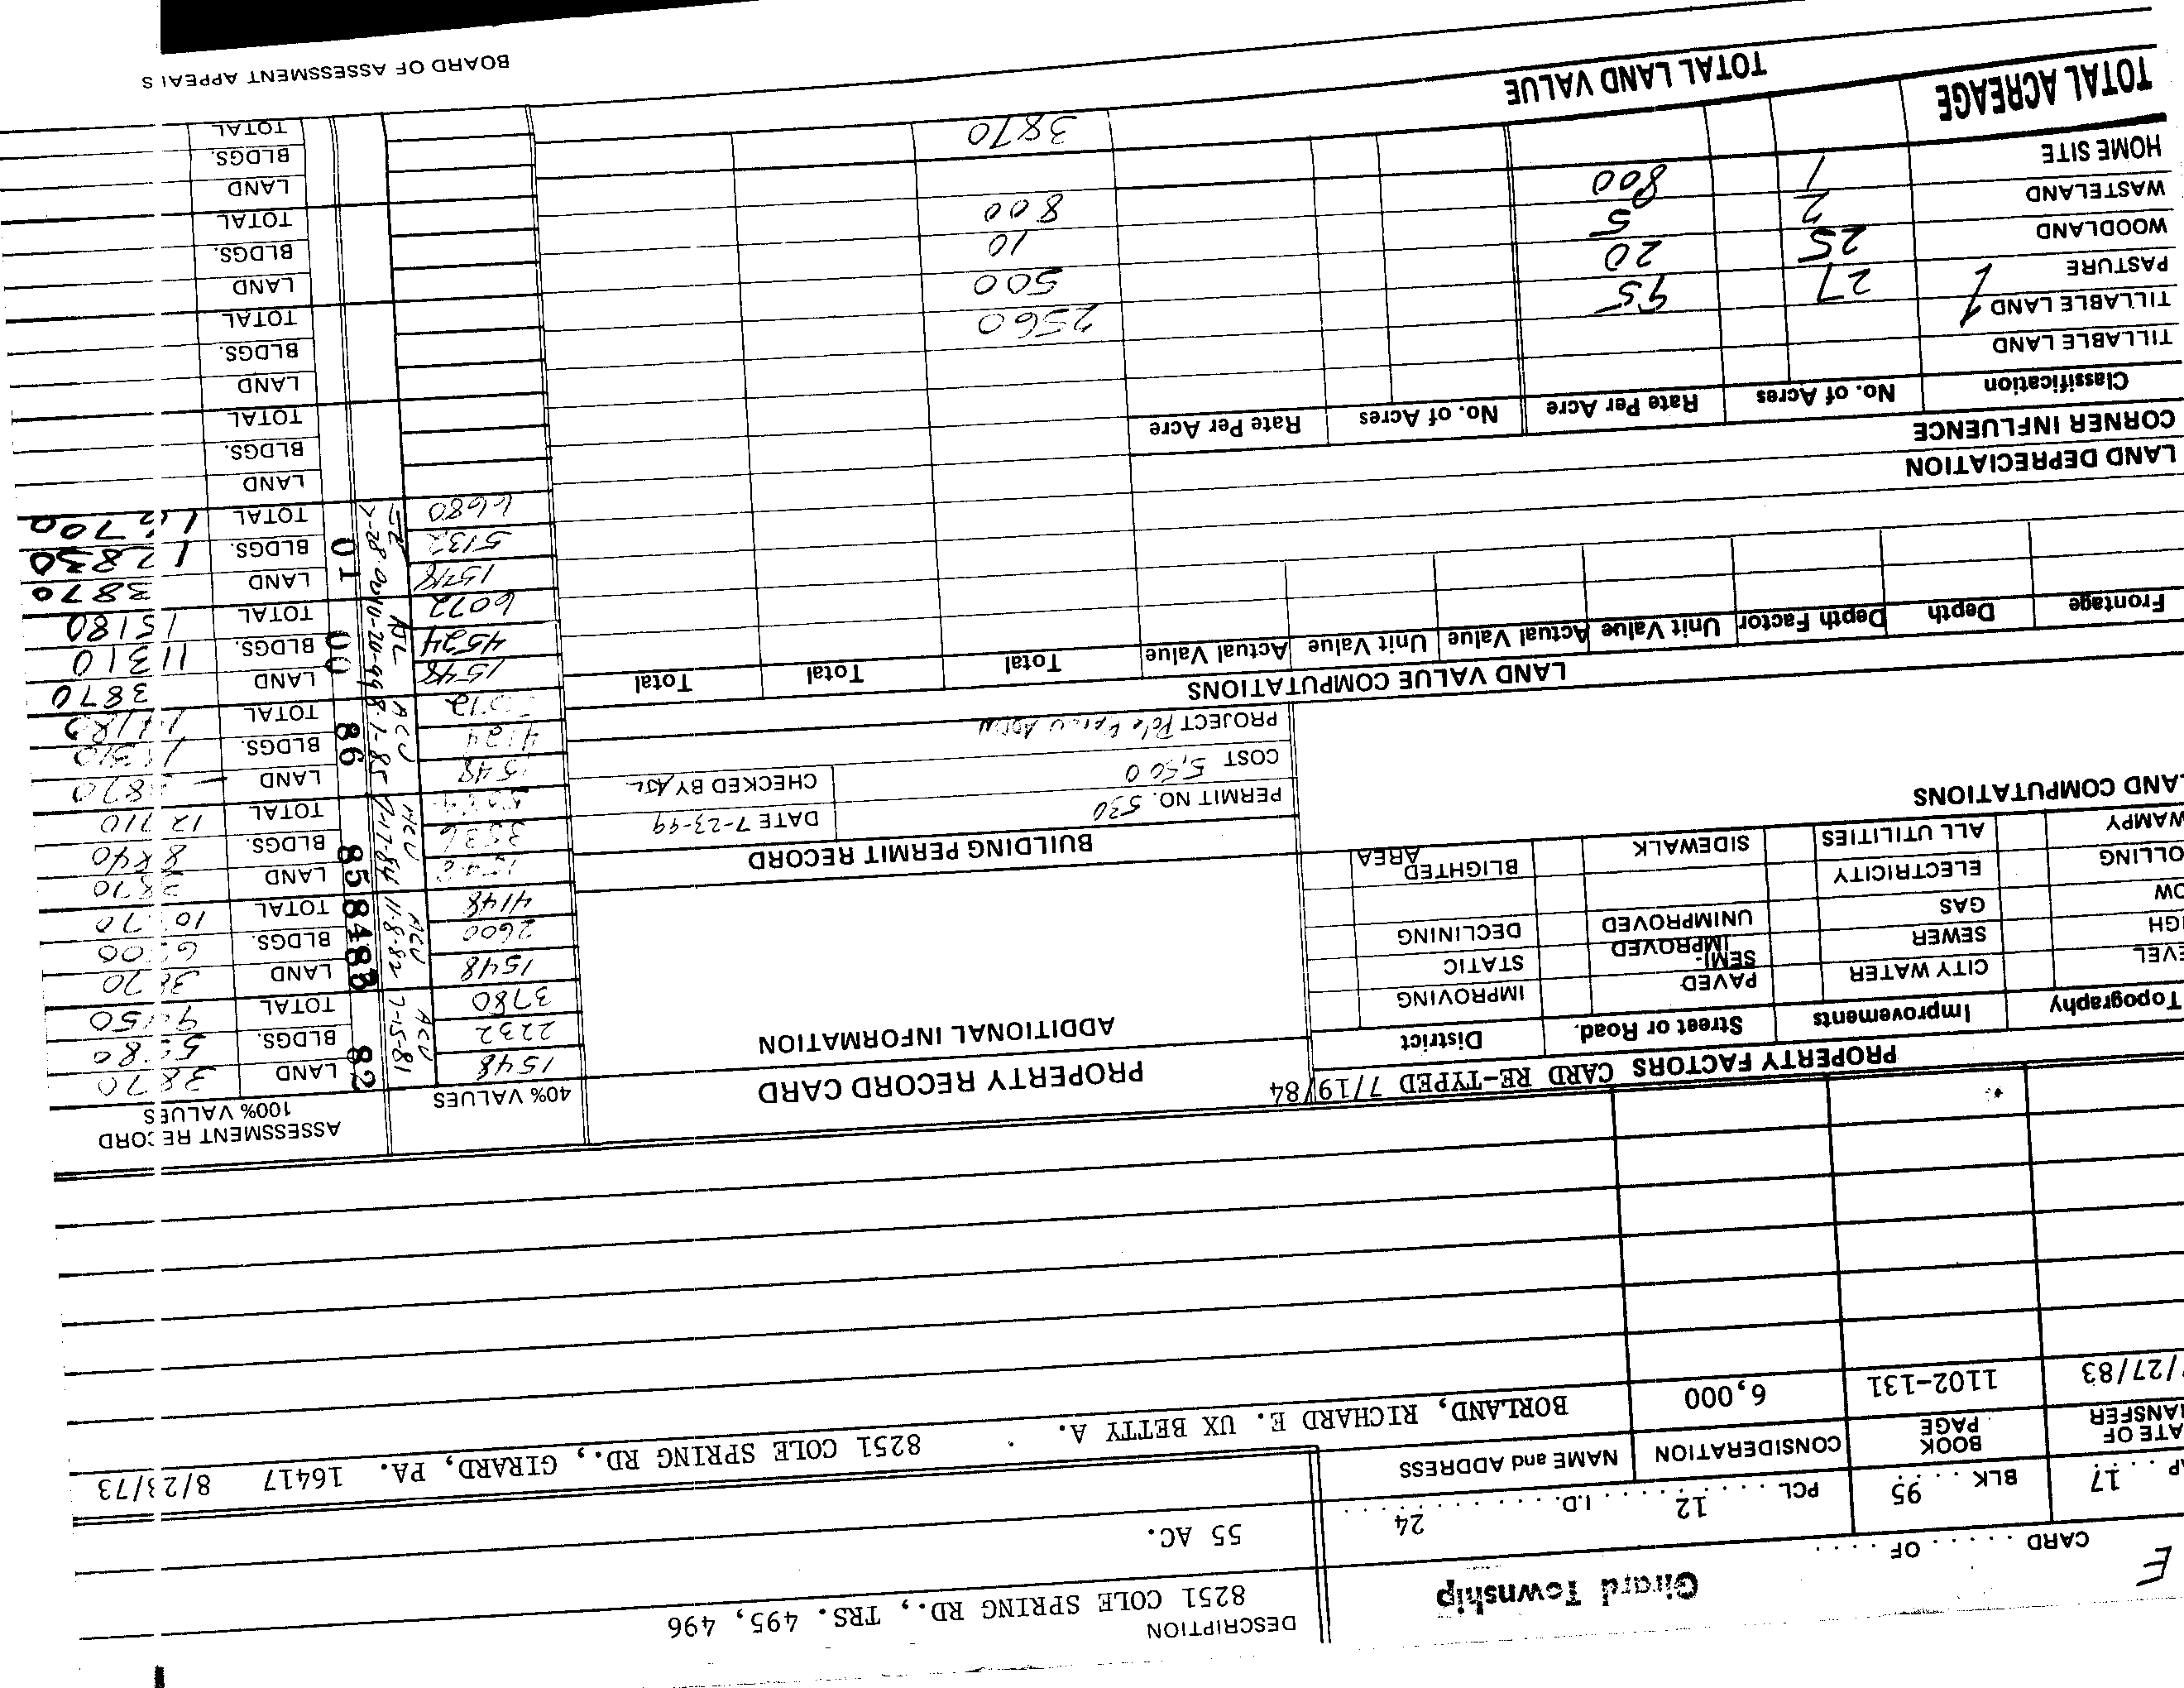 E
CARD . . . . . OF . . . .
Girard Township
DESCRIPTION
8251 COLE SPRING RD., TRS. 495, 496
55 AC.
17 BLK . . . 95 PCL . . . . 12 . . . . I.D. . . . 24 . . . .
BOOK PAGE
CONSIDERATION
NAME and ADDRESS
/27/83 1102-131 6,000 BORLAND, RICHARD E. UX BETTY A. 8251 COLE SPRING RD., GIRARD, PA. 16417 8/23/73
PROPERTY FACTORS CARD RE-TYPED 7/19/84
Topography Improvements Street or Road. District
CITY WATER PAVED IMPROVING
SEWER SEMI-IMPROVED STATIC
GAS UNIMPROVED DECLINING
ELECTRICITY BLIGHTED AREA
ALL UTILITIES SIDEWALK
PROPERTY RECORD CARD
ADDITIONAL INFORMATION
BUILDING PERMIT RECORD
PERMIT NO. 530 DATE 7-23-99
COST 5,500 CHECKED BY AJL
PROJECT Pole
40% VALUES
ASSESSMENT RECORD
100% VALUES
1548 ACV 7-15-81 82 LAND 3870
2232 BLDGS. 5580
3780 TOTAL 9450
1548 ACV 11-8-82 LAND 3870
2600 BLDGS.
4148 TOTAL
7-17-84 85 LAND 3870
3536 BLDGS. 8840
TOTAL 12710
1548 ACV 8-1-85 86 LAND 3870
BLDGS.
TOTAL
1548 AJL 00 LAND 3870
4524 BLDGS. 11310
6072 TOTAL 15180
1548 01 LAND 3870
5132 BLDGS. 12830
6680 TOTAL 16700
LAND
BLDGS.
TOTAL
LAND
BLDGS.
TOTAL
LAND
BLDGS.
TOTAL
LAND
BLDGS.
TOTAL
LAND COMPUTATIONS
LAND VALUE COMPUTATIONS
Frontage Depth Depth Factor Unit Value Actual Value Unit Value Actual Value Total Total Total
LAND DEPRECIATION
CORNER INFLUENCE
Classification No. of Acres Rate Per Acre No. of Acres Rate Per Acre
TILLABLE LAND
TILLABLE LAND 1 27 95 2560
PASTURE
WOODLAND 25 20 500
WASTELAND 2 5 10
HOME SITE 1 800 800
TOTAL ACREAGE
TOTAL LAND VALUE 3870
BOARD OF ASSESSMENT APPEALS